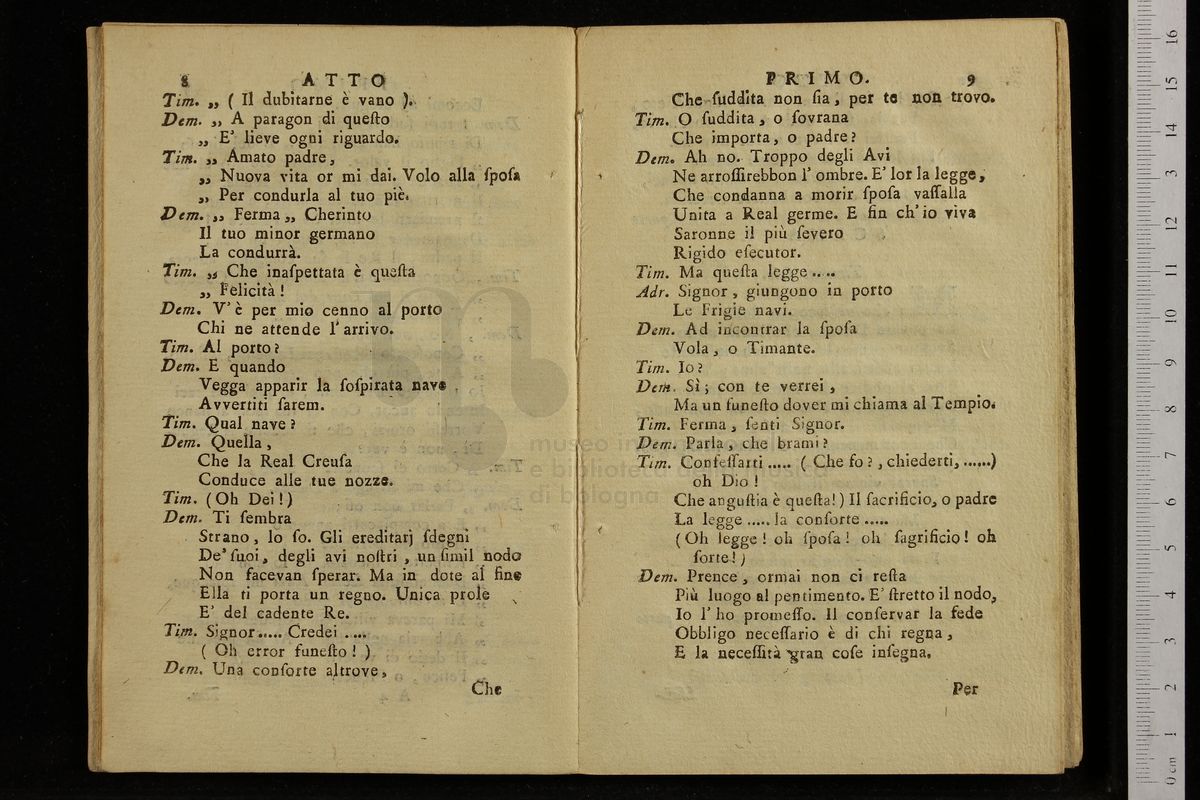 8 ATTO
Tim. „ ( Il dubitarne è vano ).
Dem. „ A paragon di queſto
„ E' lieve ogni riguardo.
Tim. „ Amato padre,
„ Nuova vita or mi dai. Volo alla ſpoſa
„ Per condurla al tuo piè.
Dem. „ Ferma „ Cherinto
Il tuo minor germano
La condurrà.
Tim. „ Che inaſpettata è queſta
„ Felicità !
Dem. V'è per mio cenno al porto
Chi ne attende l'arrivo.
Tim. Al porto ?
Dem. E quando
Vegga apparir la ſoſpirata nave
Avvertiti ſarem.
Tim. Qual nave ?
Dem. Quella ,
Che la Real Creuſa
Conduce alle tue nozze.
Tim. (Oh Dei !)
Dem. Ti ſembra
Strano , lo ſo. Gli ereditarj ſdegni
De' ſuoi, degli avi noſtri , un ſimil nodo
Non facevan ſperar. Ma in dote al fine
Ella ti porta un regno. Unica prole
E' del cadente Re.
Tim. Signor..... Credei .....
( Oh error funeſto ! )
Dem. Una conſorte altrove,
Che
PRIMO. 9
Che ſuddita non ſia , per te non trovo.
Tim. O ſuddita , o ſovrana
Che importa, o padre ?
Dem. Ah no. Troppo degli Avi
Ne arroſſirebbon l' ombre. E' lor la legge,
Che condanna a morir ſpoſa vaſſalla
Unita a Real germe. E fin ch'io viva
Saronne il più ſevero
Rigido eſecutor.
Tim. Ma queſta legge ....
Adr. Signor , giungono in porto
Le Frigie navi.
Dem. Ad incontrar la ſpoſa
Vola , o Timante.
Tim. Io ?
Dem. Sì ; con te verrei ,
Ma un funeſto dover mi chiama al Tempio.
Tim. Ferma , ſenti Signor.
Dem. Parla , che brami ?
Tim. Confeſſarti ..... ( Che fo ? , chiederti, ......)
oh Dio !
Che anguſtia è queſta! ) Il ſacrificio, o padre
La legge ..... la conſorte .....
(Oh legge ! oh ſpoſa ! oh ſagrificio ! oh
ſorte ! )
Dem. Prence , ormai non ci reſta
Più luogo al pentimento. E' ſtretto il nodo,
Io l' ho promeſſo. Il conſervar la fede
Obbligo neceſſario è di chi regna ,
E la neceſſità gran coſe inſegna.
Per
museo in
e biblioteca della musica
di bologna
0 cm 1 2 3 4 5 6 7 8 9 10 11 12 13 14 15 16